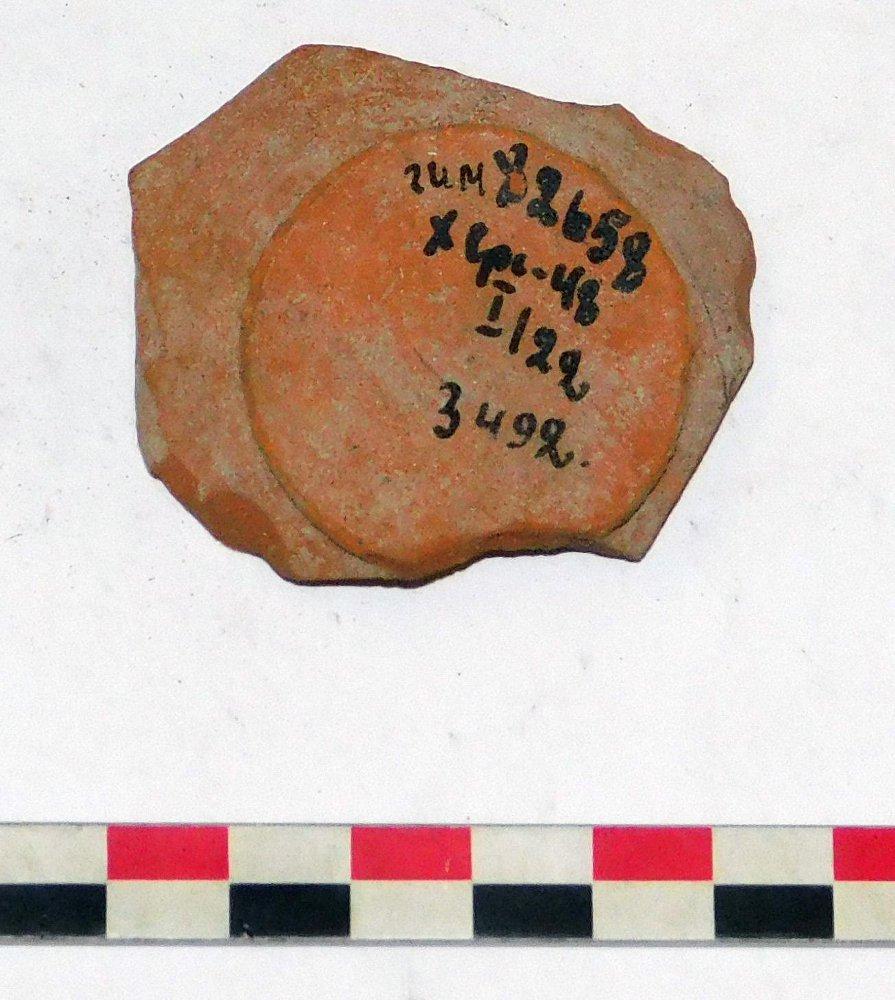 гим 82658
Хер-48
I/22
3492.